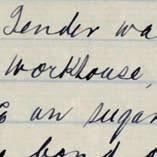 Tender wa
workhouse,
an sugar
bond